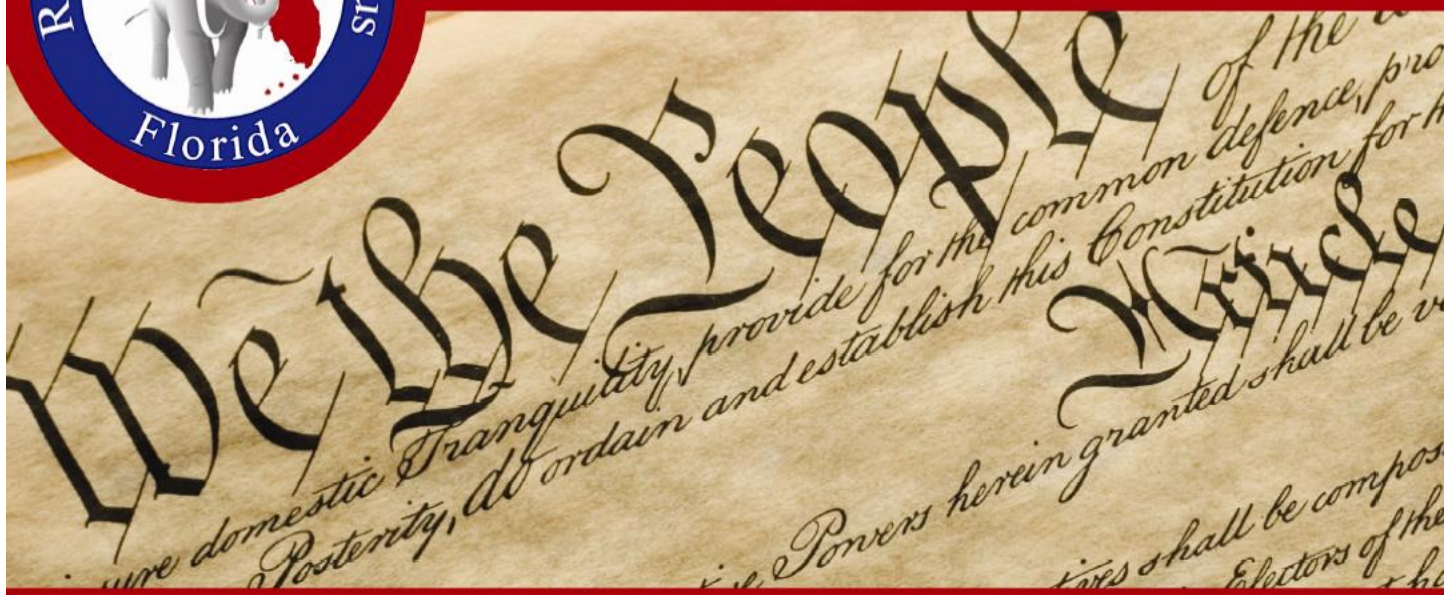 Florida
We the People of the
ure domestic Tranquility, provide for the common defence, pro
Posterity, do ordain and establish this Constitution for
Article
Powers herein granted shall be
tives shall be compos
Electors of the